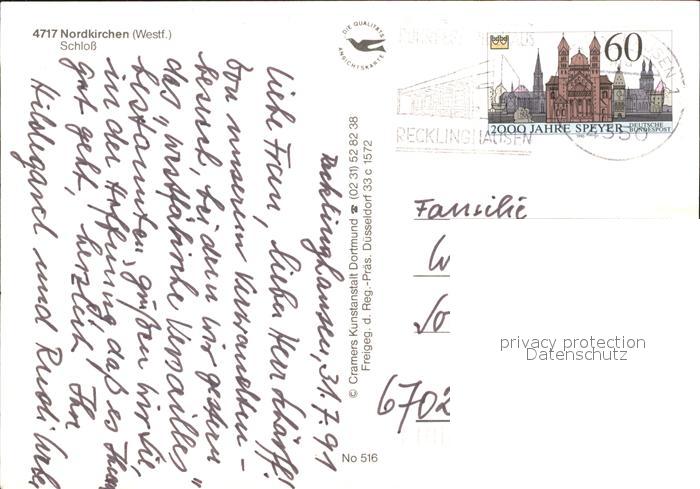 4717 Nordkirchen (Westf.)
Schloß
DIE QUALITÄTS
ANSICHTSKARTE
60
RECKLINGHAUSEN
2000 JAHRE SPEYER
DEUTSCHE
BUNDESPOST
4350
Recklinghausen, 31.7.91
Liebe Frau, lieber Herr
Von unserem Verwandten-
besuch, bei dem wir gestern
das "westfälische Versailles"
bestaunten, grüßen wir Sie,
in der Hoffnung, daß es Ihnen
gut geht, herzlich! Ihr
Hildegard und Rudi
© Cramers Kunstanstalt Dortmund ☎ (02 31) 52 82 38
Freigeg. d. Reg.-Präs. Düsseldorf 33 c 1572
No 516
Familie
W
6702
privacy protection
Datenschutz